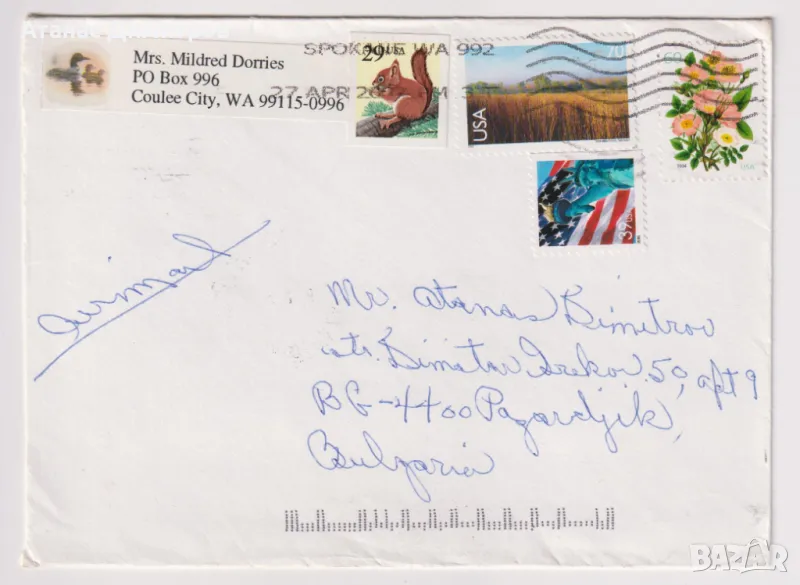 Mrs. Mildred Dorries
PO Box 996
Coulee City, WA 99115-0996
SPOKANE WA 992
27 APR 20
29
USA
70
USA
69
USA
39
USA
Airmail
Mr. Atanas Dimitrov
str. Dimitar Grekov 50, apt 9
BG-4400 Pazardjik,
Bulgaria
BAZAR